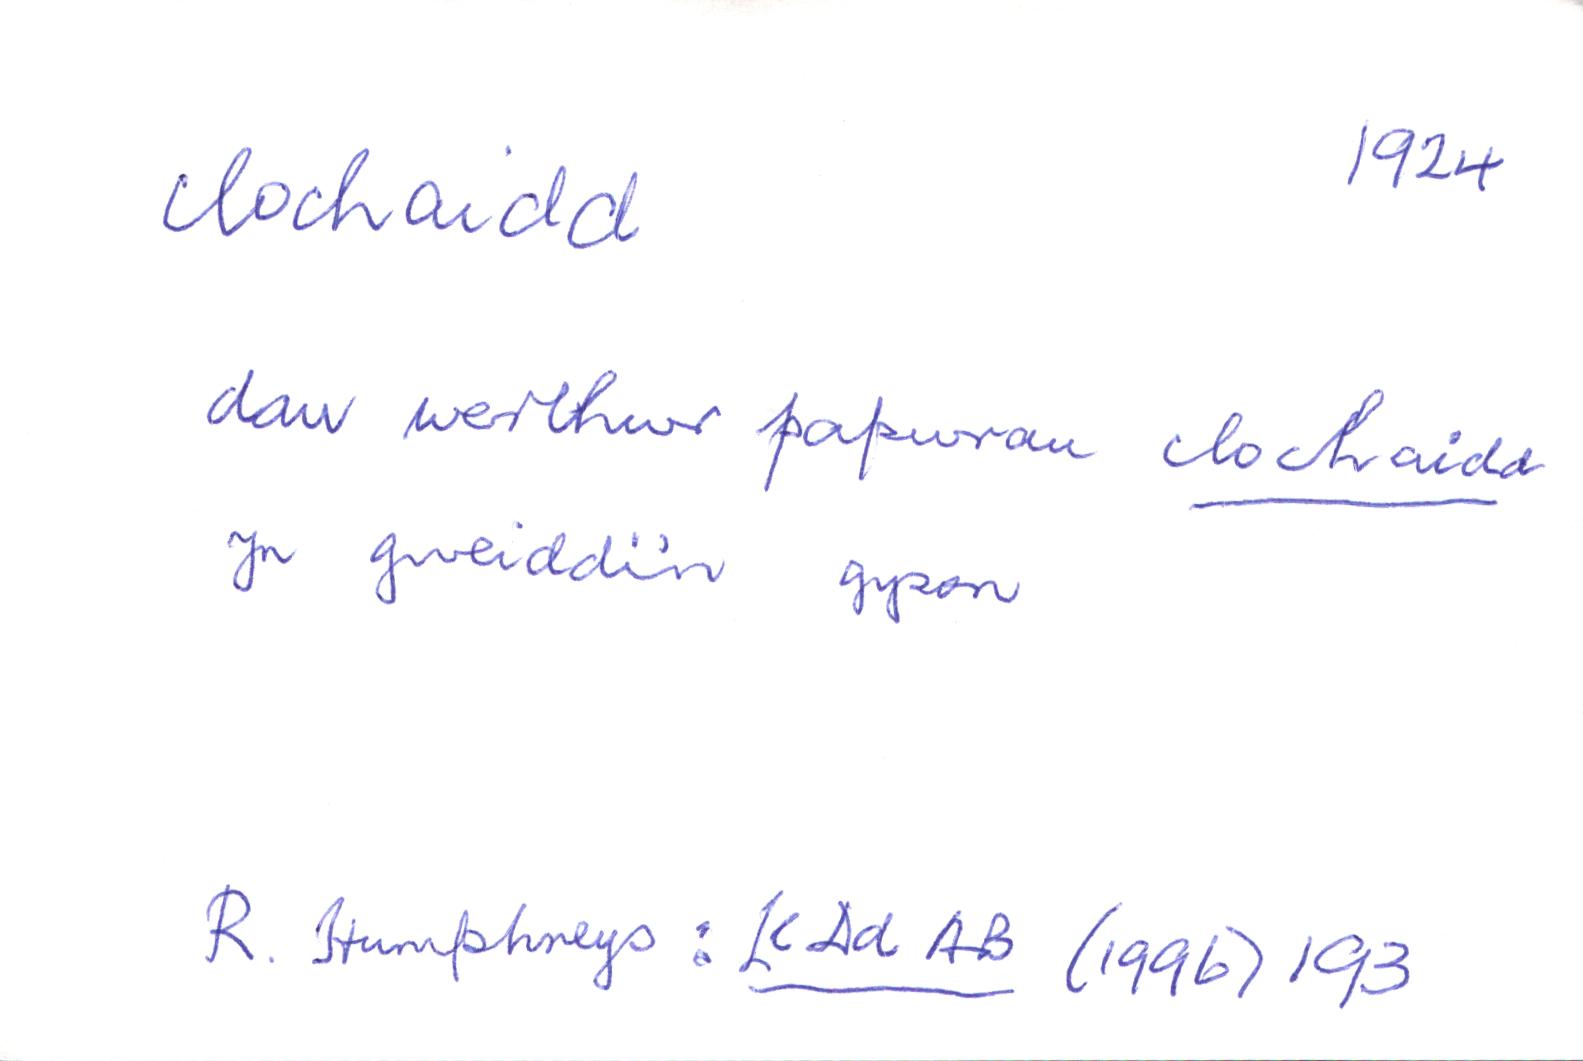 clochaidd 1924
daw werthwr papurau clochaidd
yn gweiddi'n gyson
R. Humphreys : Dd AB (1996) 193